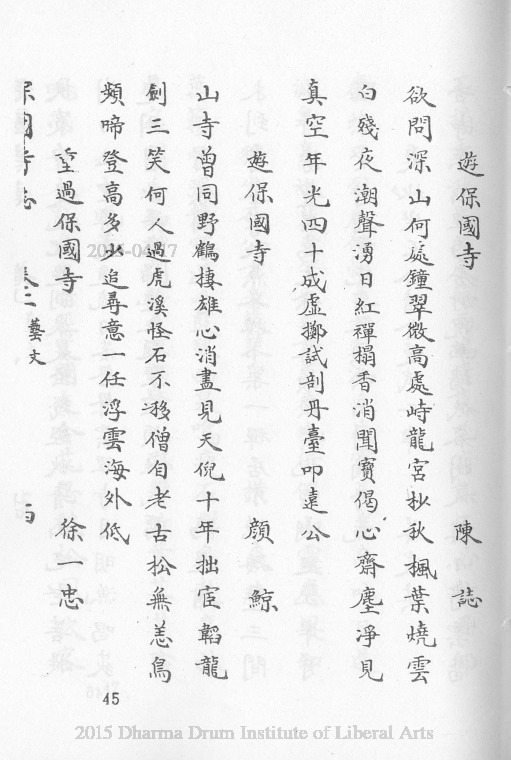 遊保國寺 陳誌
欲問深山何處鐘翠微高處峙龍宮杪秋楓葉燒雲
白殘夜潮聲湧日紅禪搨香消聞寶偈心齋塵淨見
真空年光四十成虛擲試剖丹臺叩遠公
遊保國寺 顏鯨
山寺曾同野鶴棲雄心消盡見天倪十年拙宦韜龍
劍三笑何人過虎溪怪石不移僧自老古松無恙鳥
頻啼登高多少追尋意一任浮雲海外低
重過保國寺 徐一忠
保國寺志 卷二 藝文
45
2015 Dharma Drum Institute of Liberal Arts